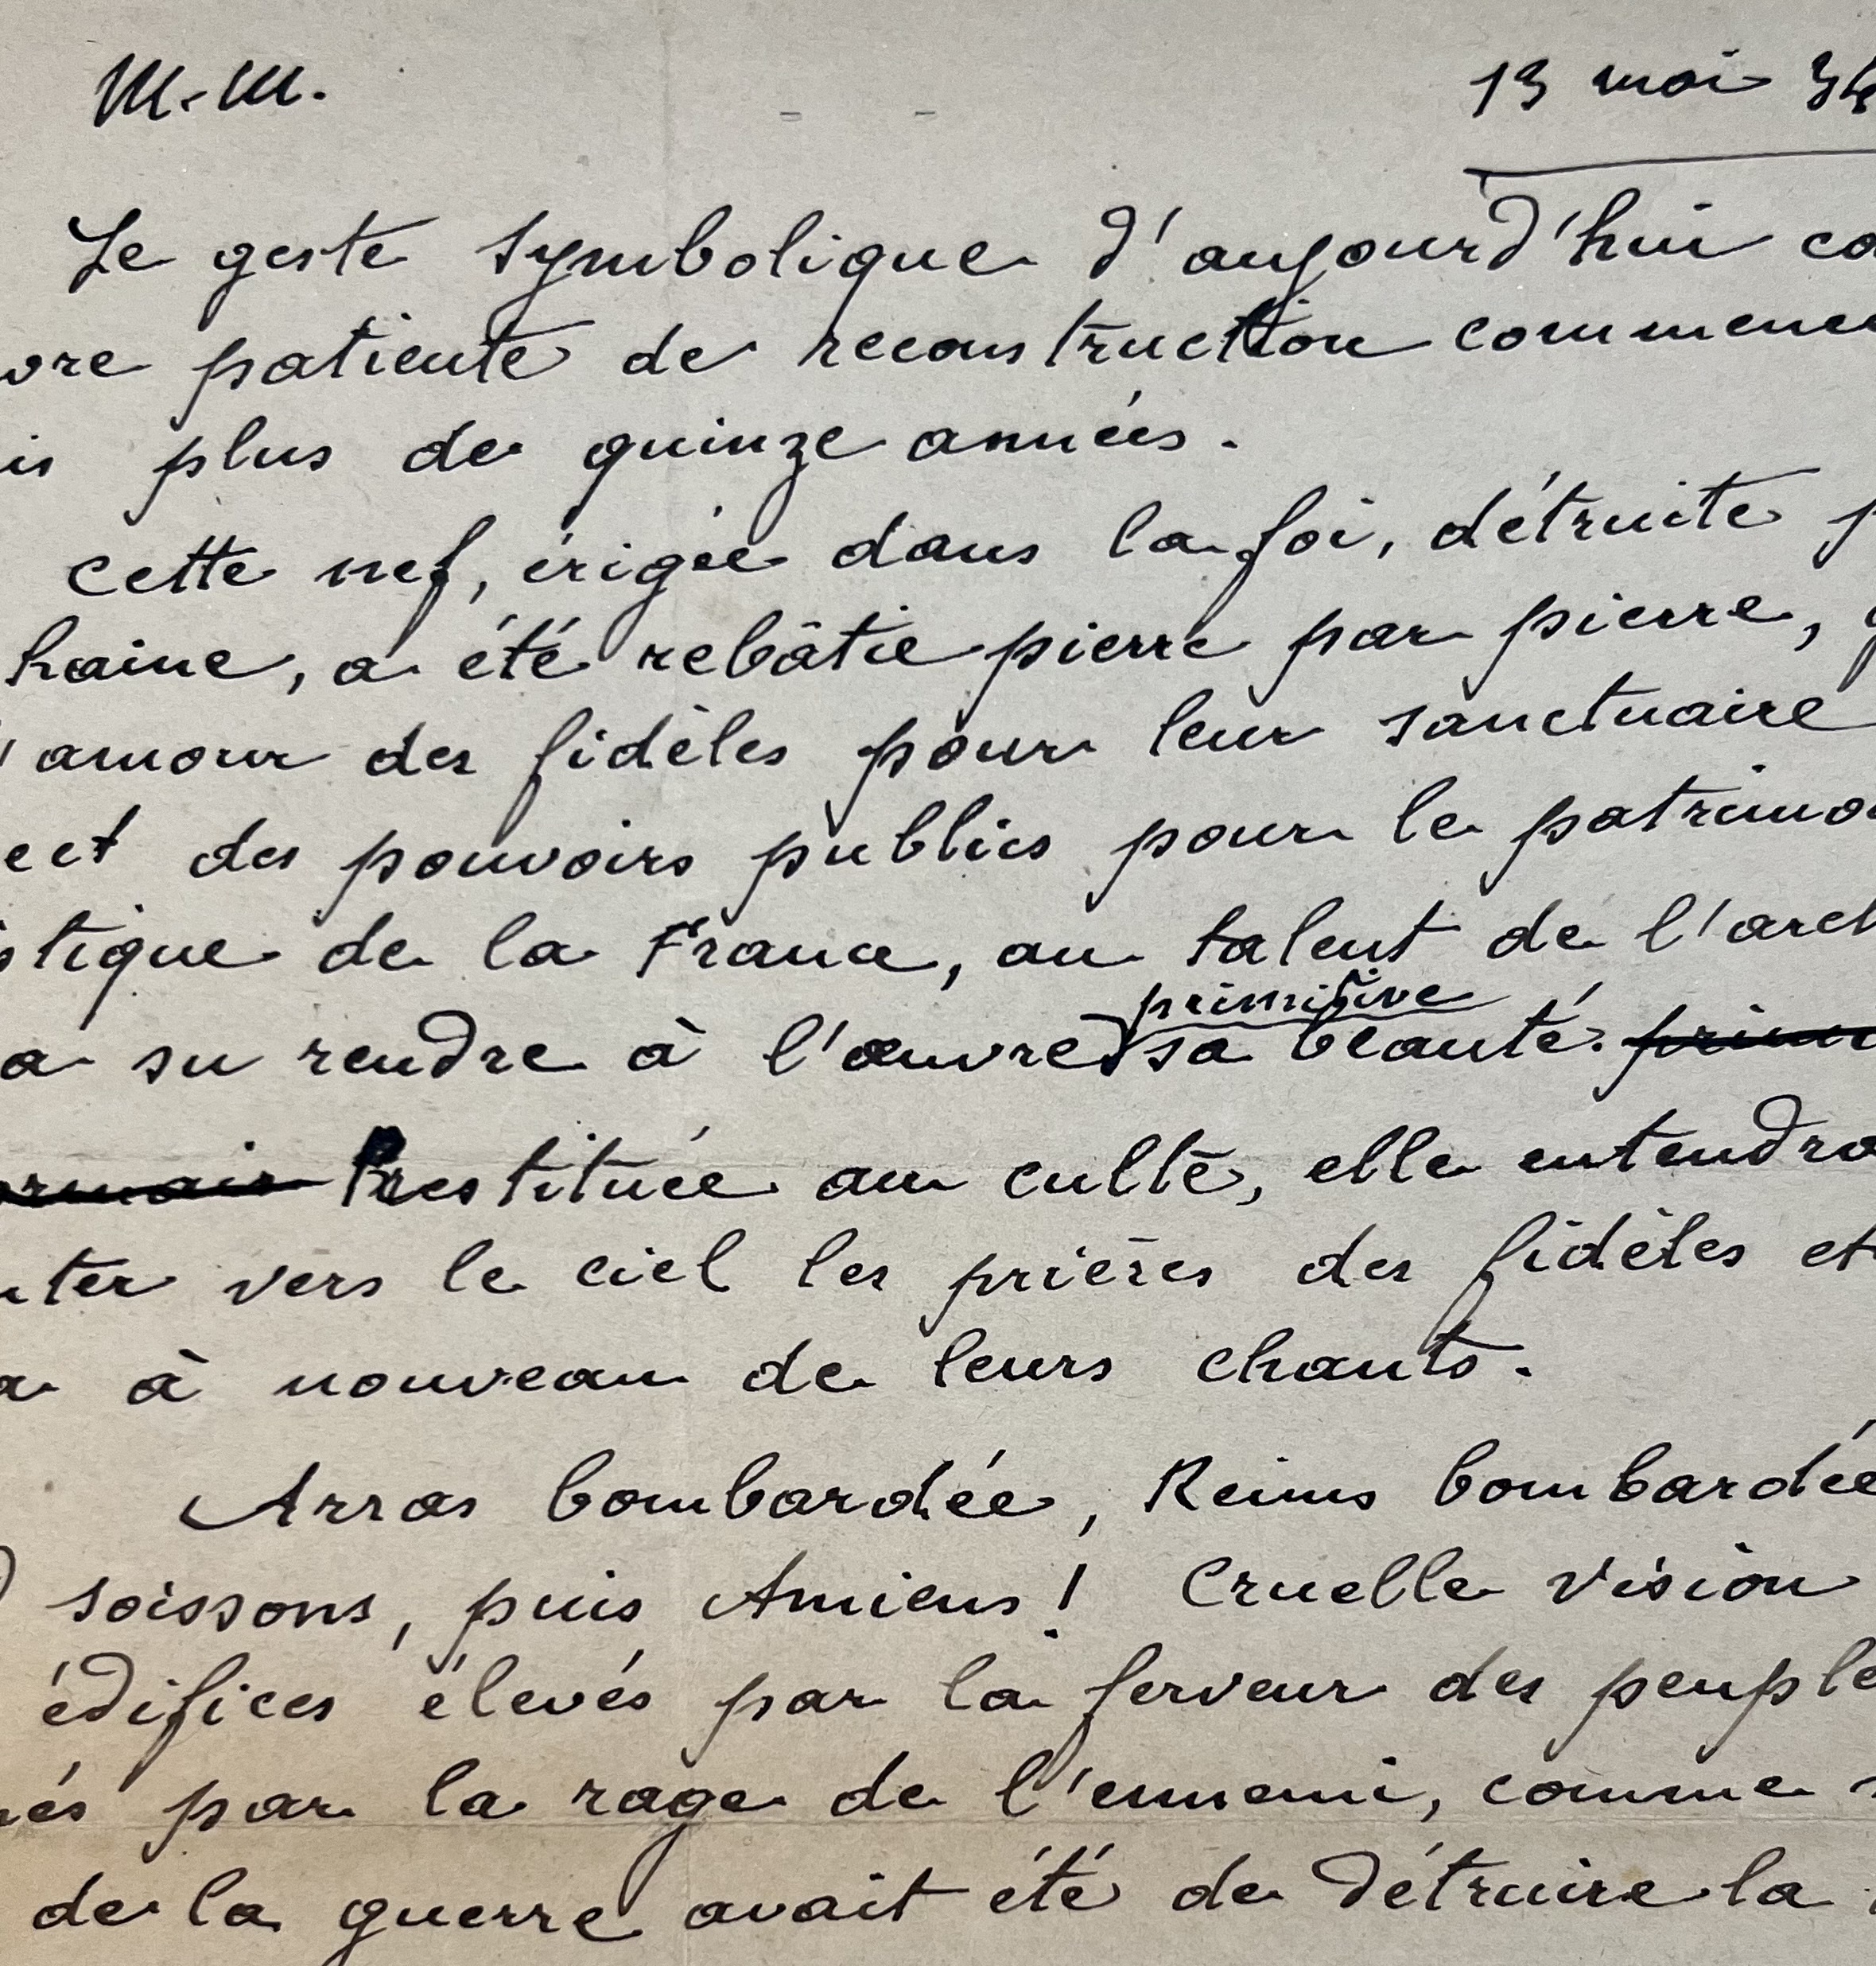 M. M.
13 mai 34
Le geste symbolique d'aujourd'hui co
vre patiente de reconstruction commenc
is plus de quinze années.
Cette nef, érigée dans la foi, détruite p
haine, a été rebâtie pierre par pierre, g
'amour des fidèles pour leur sanctuaire
ect des pouvoirs publics pour le patrimo
stique de la France, au talent de l'arch
primitive
a su rendre à l'œuvre sa beauté.
Restituée au culte, elle entendra
nter vers le ciel les prières des fidèles et
a à nouveau de leurs chants.
Arras bombardée, Reims bombardée
Soissons, puis Amiens! Cruelle vision
édifices élevés par la ferveur des peuple
nés par la rage de l'ennemi, comme
de la guerre avait été de détruire la